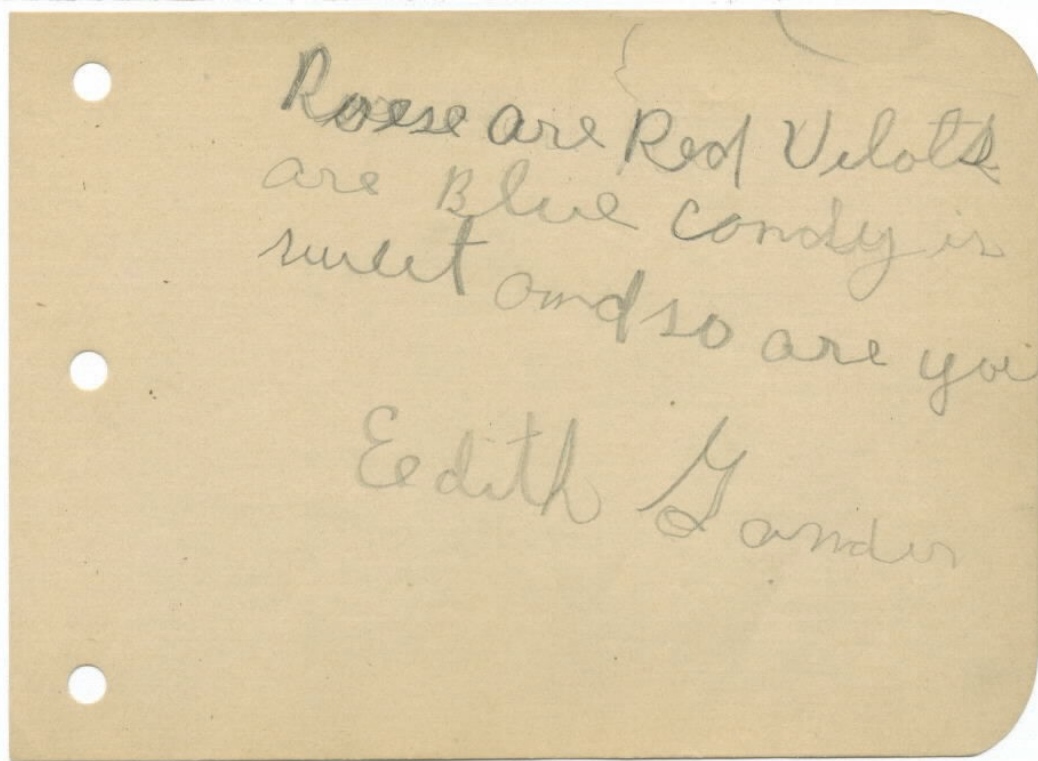 Roese are Red Vilots
are Blue candy is
sweet and so are you
Eedith Gander